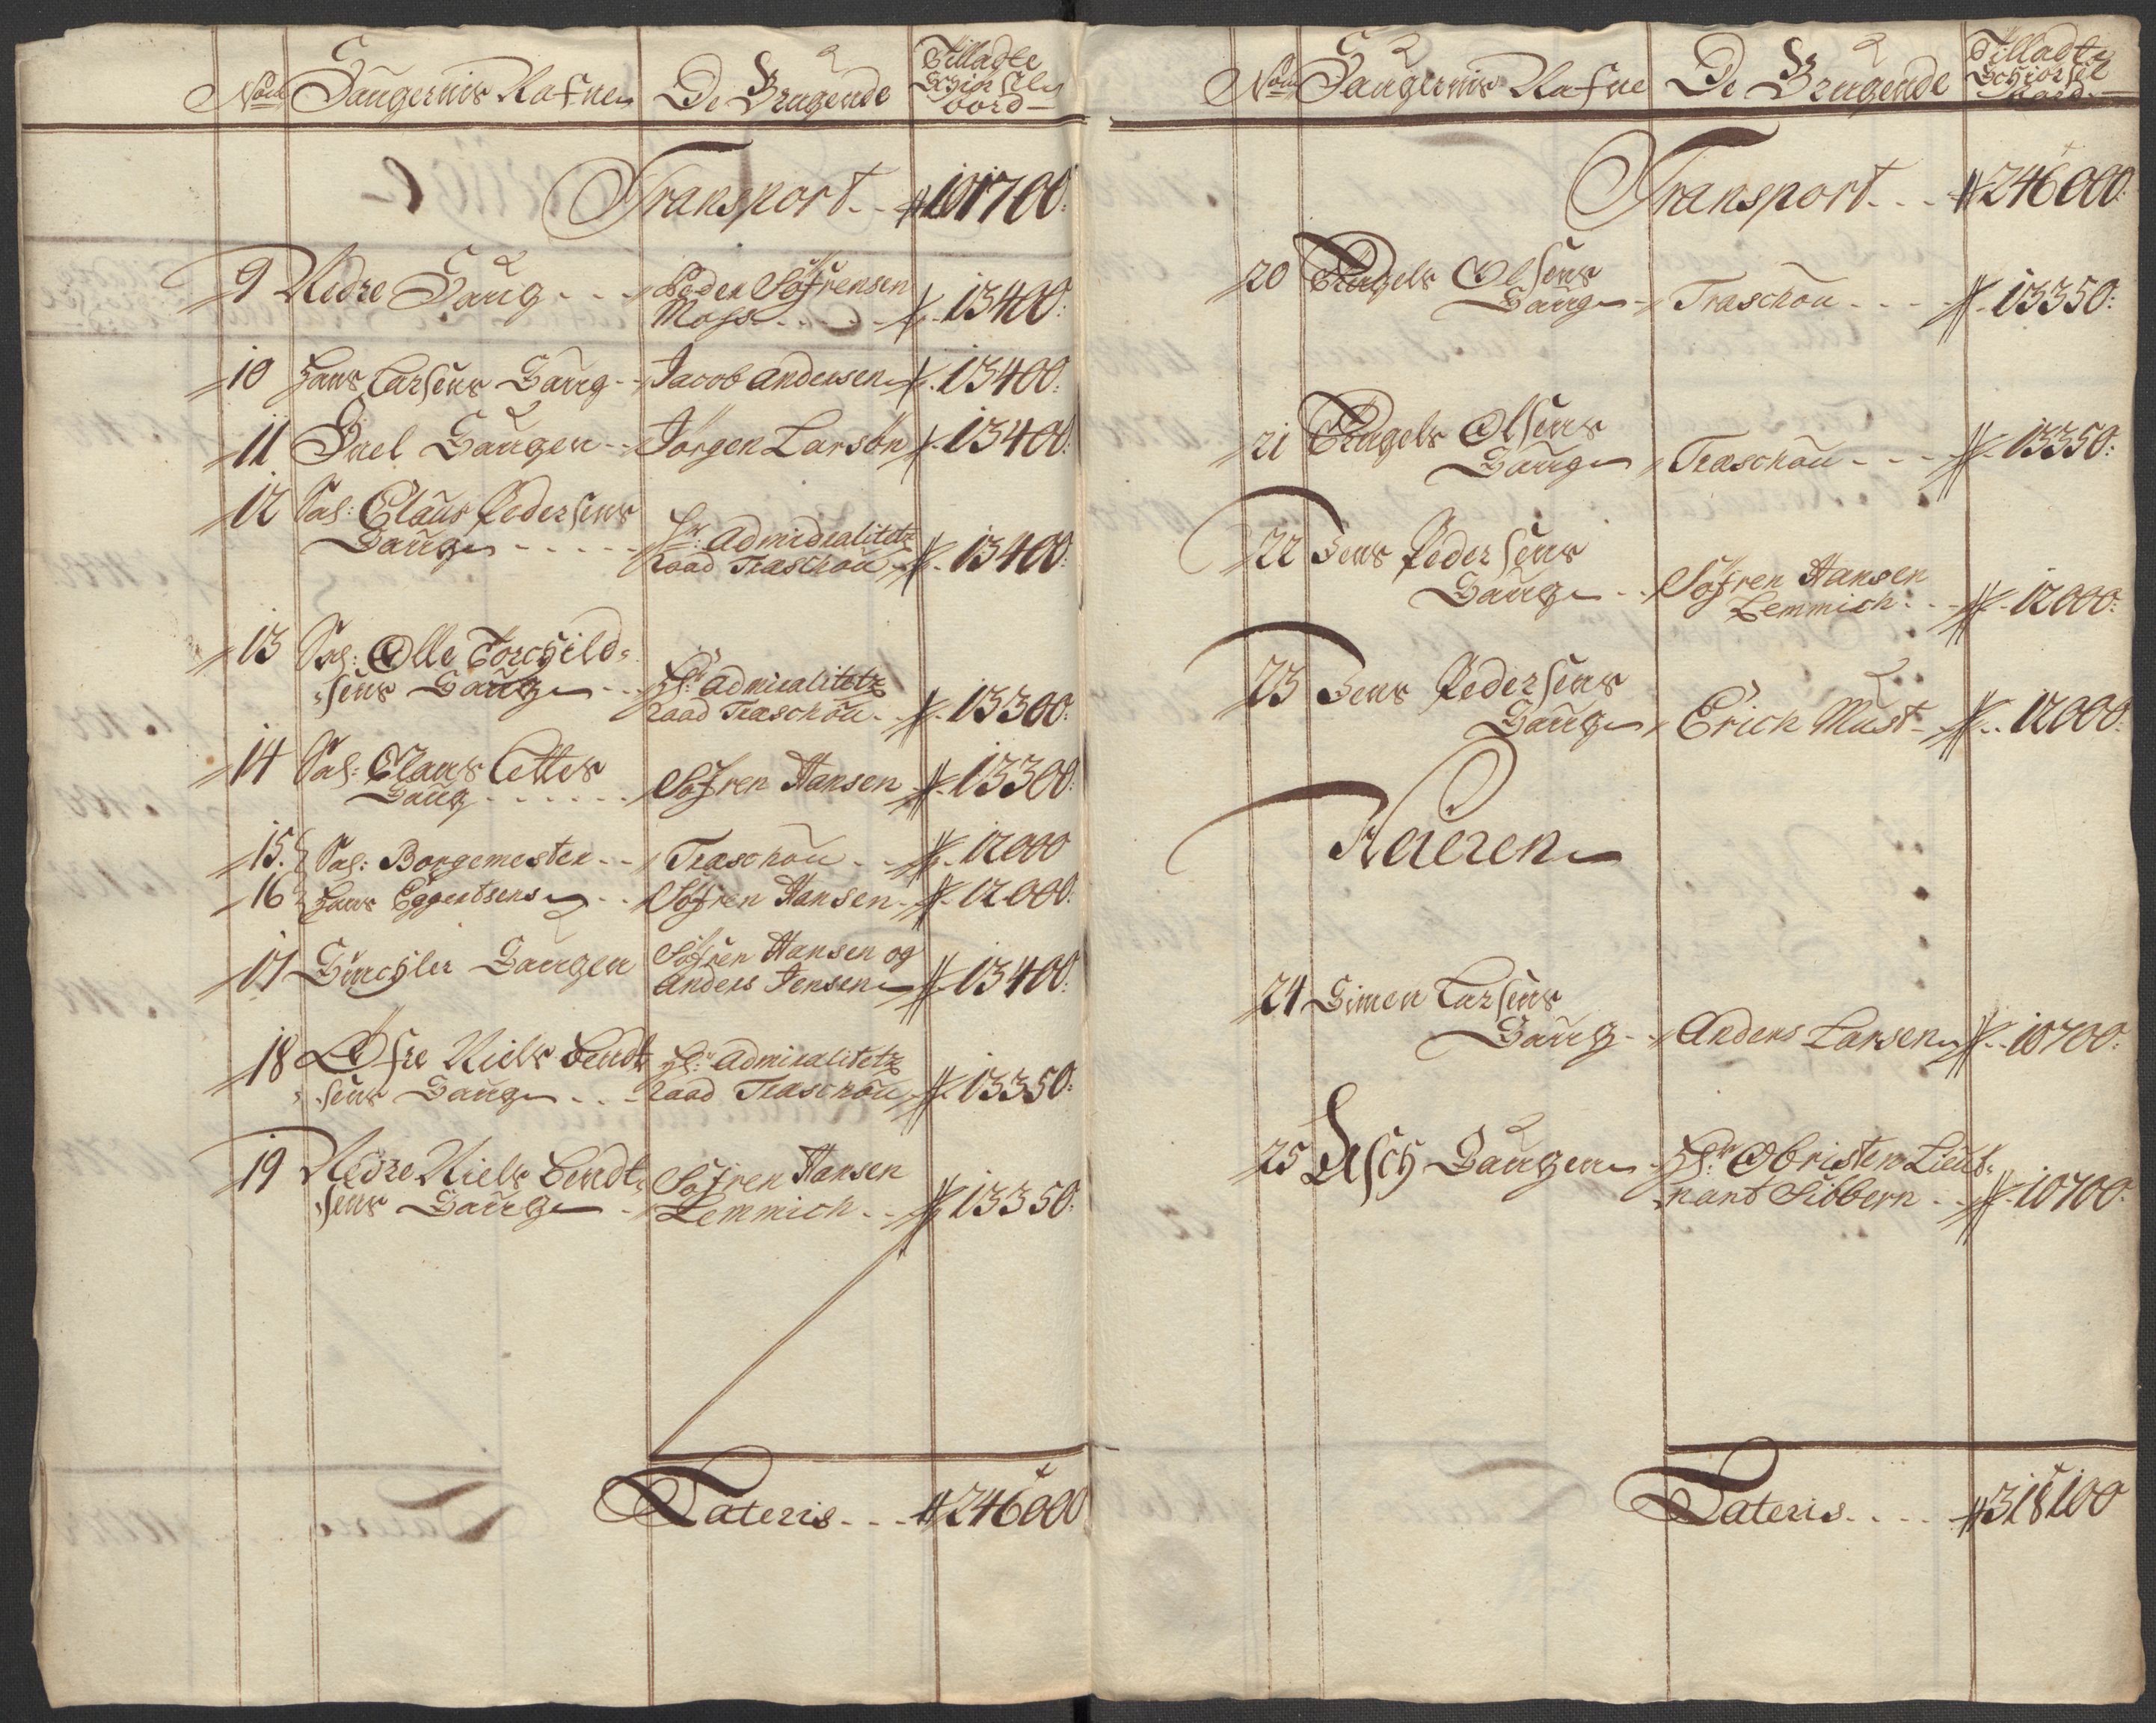 No Saugernis Nafne De Brugende Tilladte
Schiorsels
bord
Transport 101700
9 Nedre Saug Peder Söfrensen
Moss 13400
10 Hans Larsens Saug Jacob Andersen 13400
11 Quel Saugen Jörgen Larsön 13400
12 Sal: Claus Pedersens
Saug Hr: Admiralitetz
Raad Traschou 13400
13 Sal: Olle Torchild-
sens Saug Hr: Admiralitetz
Raad Traschou 13300
14 Sal: Claus Cettes
Saug Söfren Hansen 13300
15. Sal: Borgemester Traschou 12000
16 Hans Eggertsens Söfren Hansen 12000
17 Saugen Söfren Hansen og
Anders Jensen 13400
18 Öfre Niels Bendt
sens Saug Hr: Admiralitetz
Raad Traschou 13350
19 Nedre Niels Bendt
sens Saug Söfren Hansen
Lemmich 13350
Lateris 246000
No Saugernis Nafne De Brugende Tilladte
Schiorsel
Bord
Transport 246000
20 Engels Olsens
Saug Traschou 13350
21 Engels Olsens
Saug Traschou 13350
22 Jens Pedersens
Saug Söfren Hansen
Lemmich 12000
23 Jens Pedersens
Saug Erich Must 12000
24 Simen Larsens
Saug Anders Larsen 10700
25 Saugen Hr: Obristen Lieut-
nant Sibbern 10700
Lateris 318100